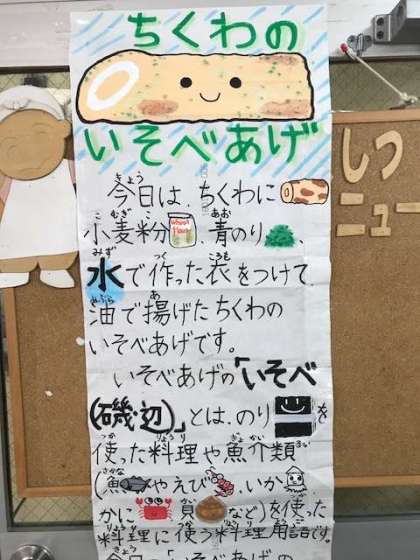 ちくわの
いそべあげ
今日は、ちくわに
小麦粉、青のり、
水で作った衣をつけて
油で揚げたちくわの
いそべあげです。
いそべあげの「いそべ
(磯辺)」とは、のりを
使った料理や魚介類
(魚やえび、いか、
かに、貝など)を使った
料理に使う料理用語です。
しつ
ニュー